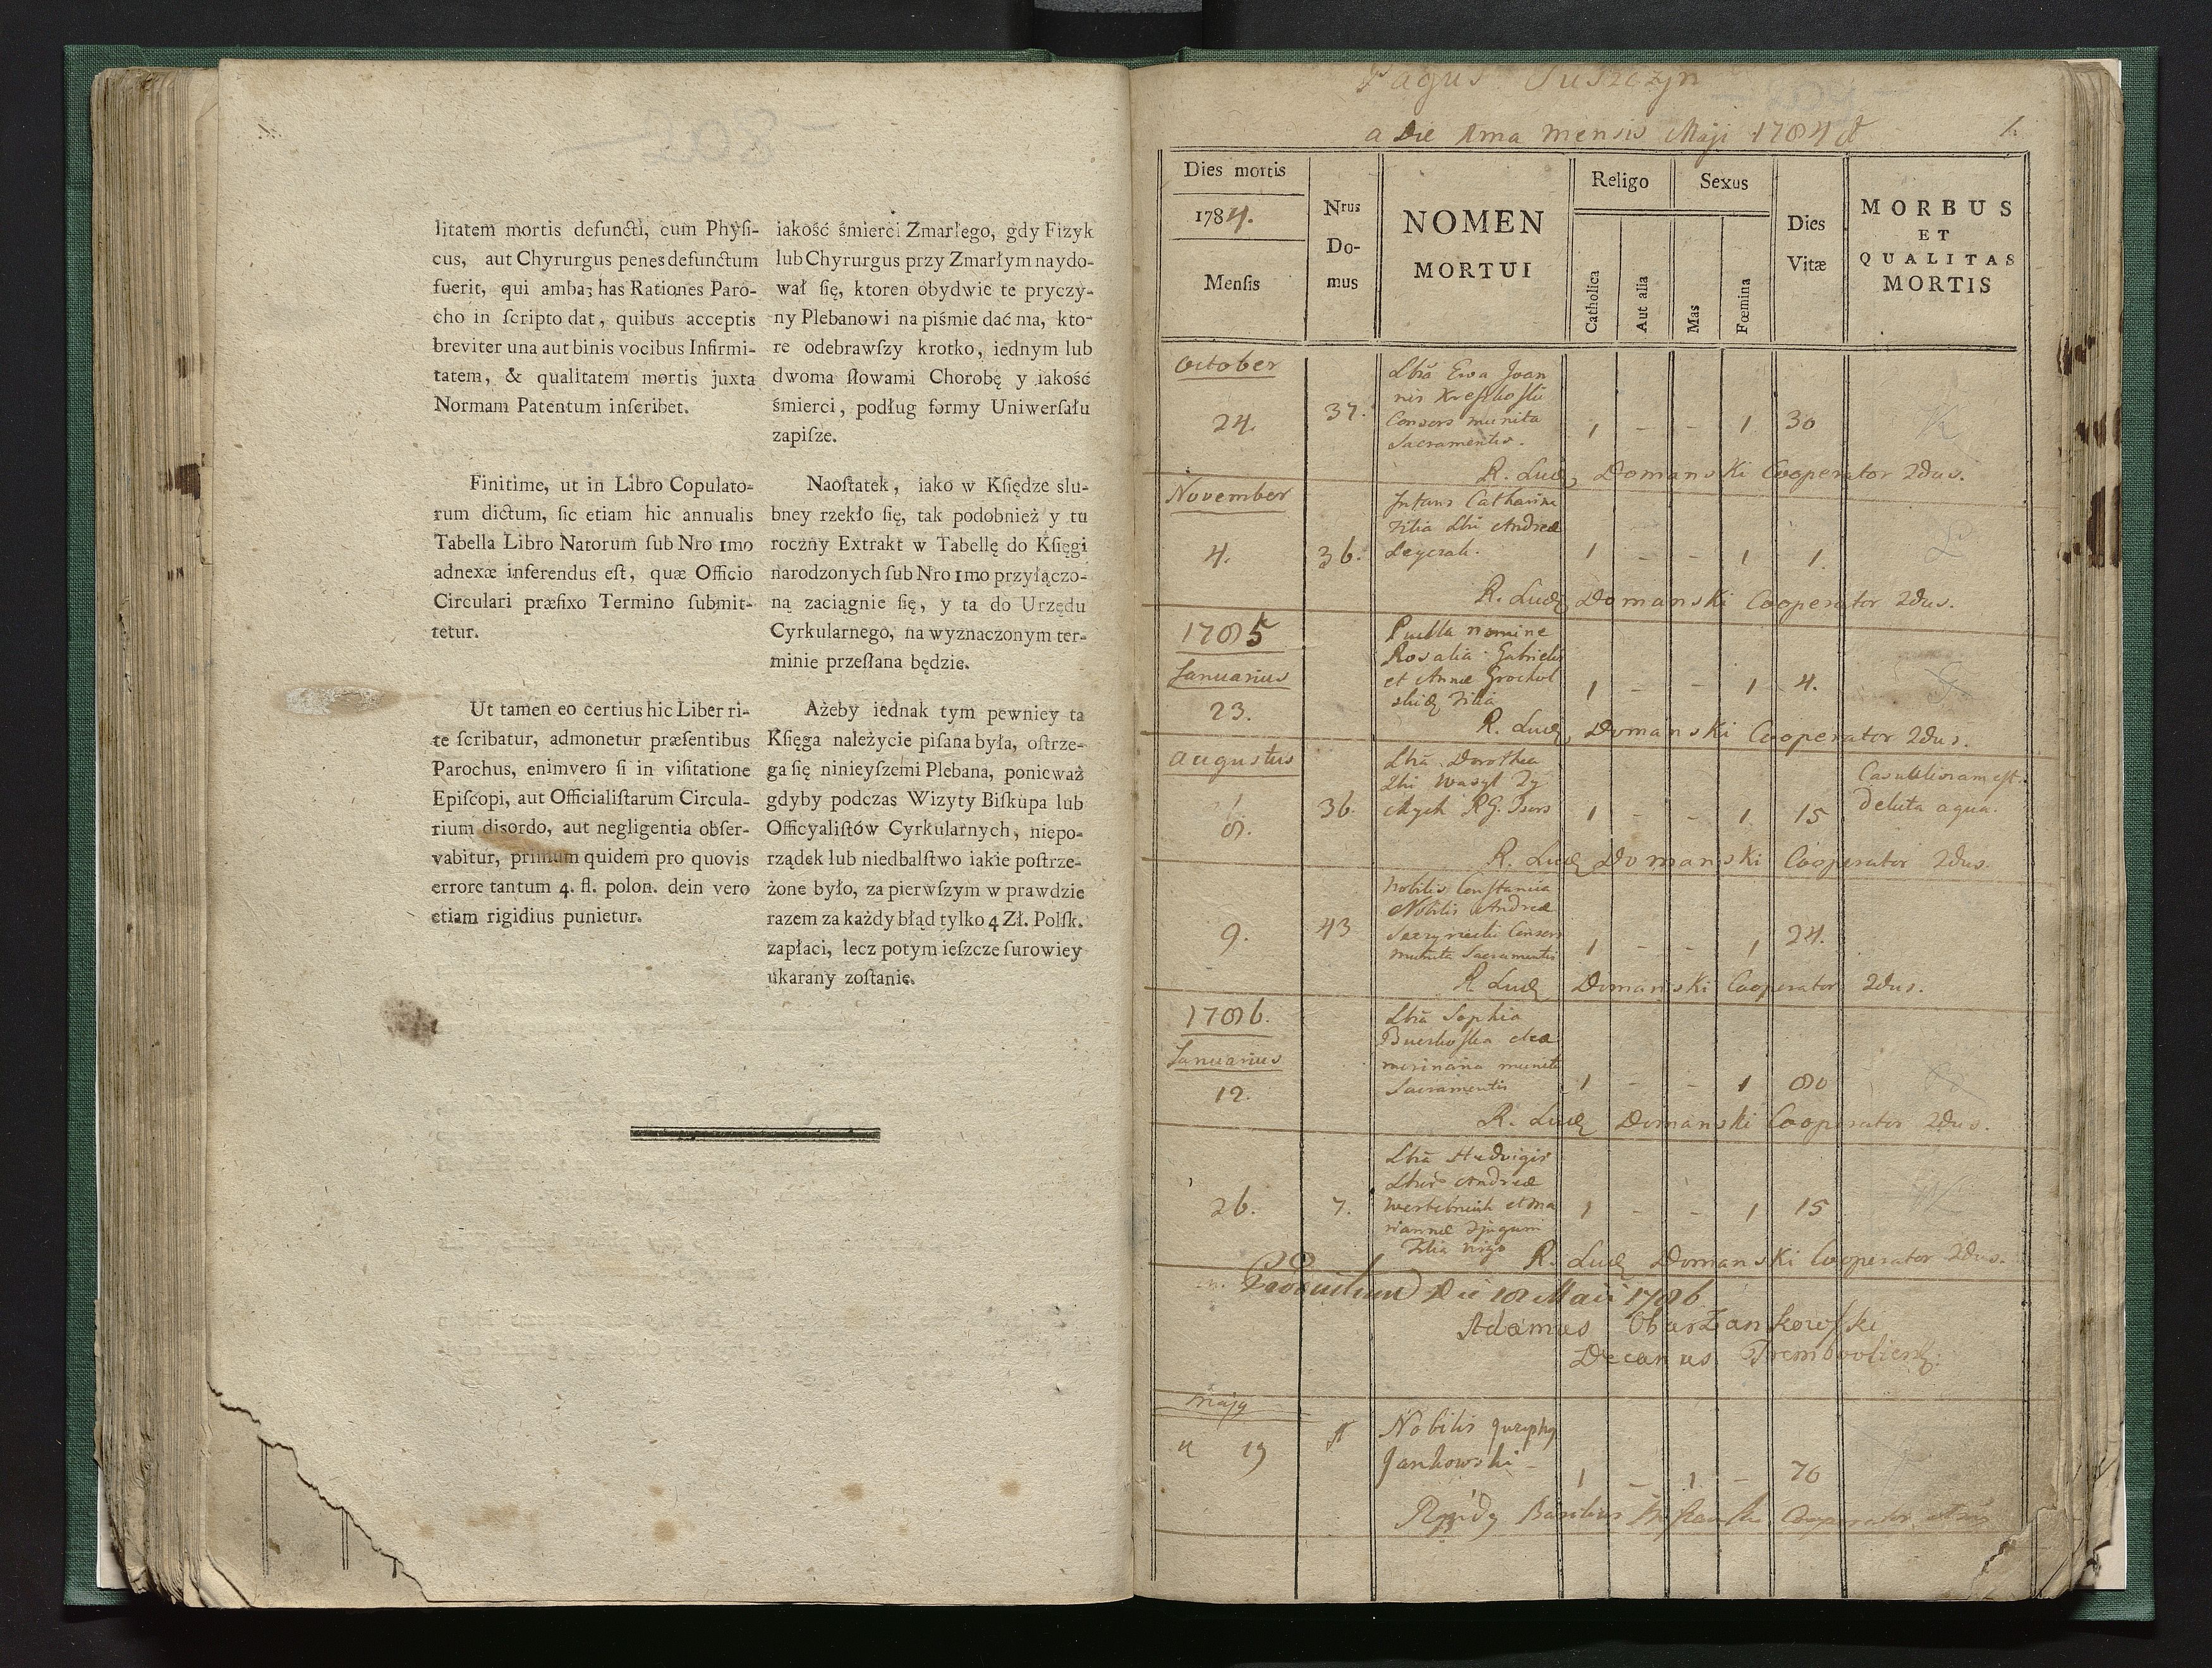 litatem mortis defuncti, cum Phyſi-
cus, aut Chyrurgus penes defunctum
fuerit, qui ambaʒ has Rationes Paro-
cho in ſcripto dat, quibus acceptis
breviter una aut binis vocibus Infirmi-
tatem, & qualitatem mortis juxta
Normam Patentum inſcribet.
Finitime, ut in Libro Copulato-
rum dictum, ſic etiam hic annualis
Tabella Libro Natorum ſub Nro 1mo
adnexæ inferendus eſt, quæ Officio
Circulari præfixo Termino ſubmit-
tetur.
Ut tamen eo certius hic Liber ri-
te ſcribatur, admonetur præſentibus
Parochus, enimvero ſi in viſitatione
Epiſcopi, aut Officialiſtarum Circula-
rium disordo, aut negligentia obſer-
vabitur, primum quidem pro quovis
errore tantum 4. fl. polon. dein vero
etiam rigidius punietur.
iakość śmierci Zmarłego, gdy Fizyk
lub Chyrurgus przy Zmarłym naydo-
wał ſię, ktoren obydwie te pryczy-
ny Plebanowi na piśmie dać ma, kto-
re odebrawſzy krotko, iednym lub
dwoma ſłowami Chorobę y iakość
śmierci, podług formy Uniwerſału
zapiſze.
Naoſtatek, iako w Kſiędze slu-
bney rzekło ſię, tak podobnież y tu
roczny Extrakt w Tabellę do Kſięgi
narodzonych ſub Nro 1mo przyłączo-
ną zaciągnie ſię, y ta do Urzędu
Cyrkularnego, na wyznaczonym ter-
minie przeſłana będzie.
Ażeby iednak tym pewniey ta
Kſięga należycie piſana była, oſtrze-
ga ſię ninieyſzemi Plebana, ponieważ
gdyby podczas Wizyty Biſkupa lub
Officyaliſtów Cyrkularnych, niepo-
rządek lub niedbalſtwo iakie poſtrze-
żone było, za pierwſzym w prawdzie
razem za każdy błąd tylko 4 Zł. Polſk.
zapłaci, lecz potym ieſzcze ſurowiey
ukarany zoſtanie.
Pagus Suszczyn
a Die 1ma mensis Maji 1784
1.
Dies mortis
1784.
Menſis
Nrus
Do-
mus
NOMEN
MORTUI
Religo
Catholica
Aut alia
Sexus
Mas
Fœmina
Dies
Vitæ
MORBUS
ET
QUALITAS
MORTIS
October
24. 37.
Ewa Joan
nis
Consors munita
Sacramentis.
1 - - 1 30
R. Lud. Domanski Cooperator 2dus.
November
4. 36.
Infans Catharina
Filia Andreæ
1 - - 1 1.
R. Lud. Domanski Cooperator 2dus.
1785
Januarius
23.
Puella nomine
Rosalia Gabrielis
et Annæ Grochol
skich Filia
1 - - 1 4.
R. Lud. Domanski Cooperator 2dus.
Augustus
8. 36.
Dorothea
Wasyl
1 - - 1 15
aqua.
R. Lud. Domanski Cooperator 2dus.
9. 43
Nobilis Constancia
Nobilis Andreæ
Consors
munita Sacramentis
1 - - 1 24.
R. Lud. Domanski Cooperator 2dus.
1786.
Januarius
12.
Sophia
munita
Sacramentis
1 - - 1 80
R. Lud. Domanski Cooperator 2dus.
26. 7.
Hedvigis
Andreæ
et Ma
riannæ
Filia
1 - - 1 15
R. Lud. Domanski Cooperator 2dus.
Productum Die 18 Maii 1786
Adamus
Decanus
Majy
19
Nobilis
Jankowski
1 - 1 - 76
Basilius Cooperator